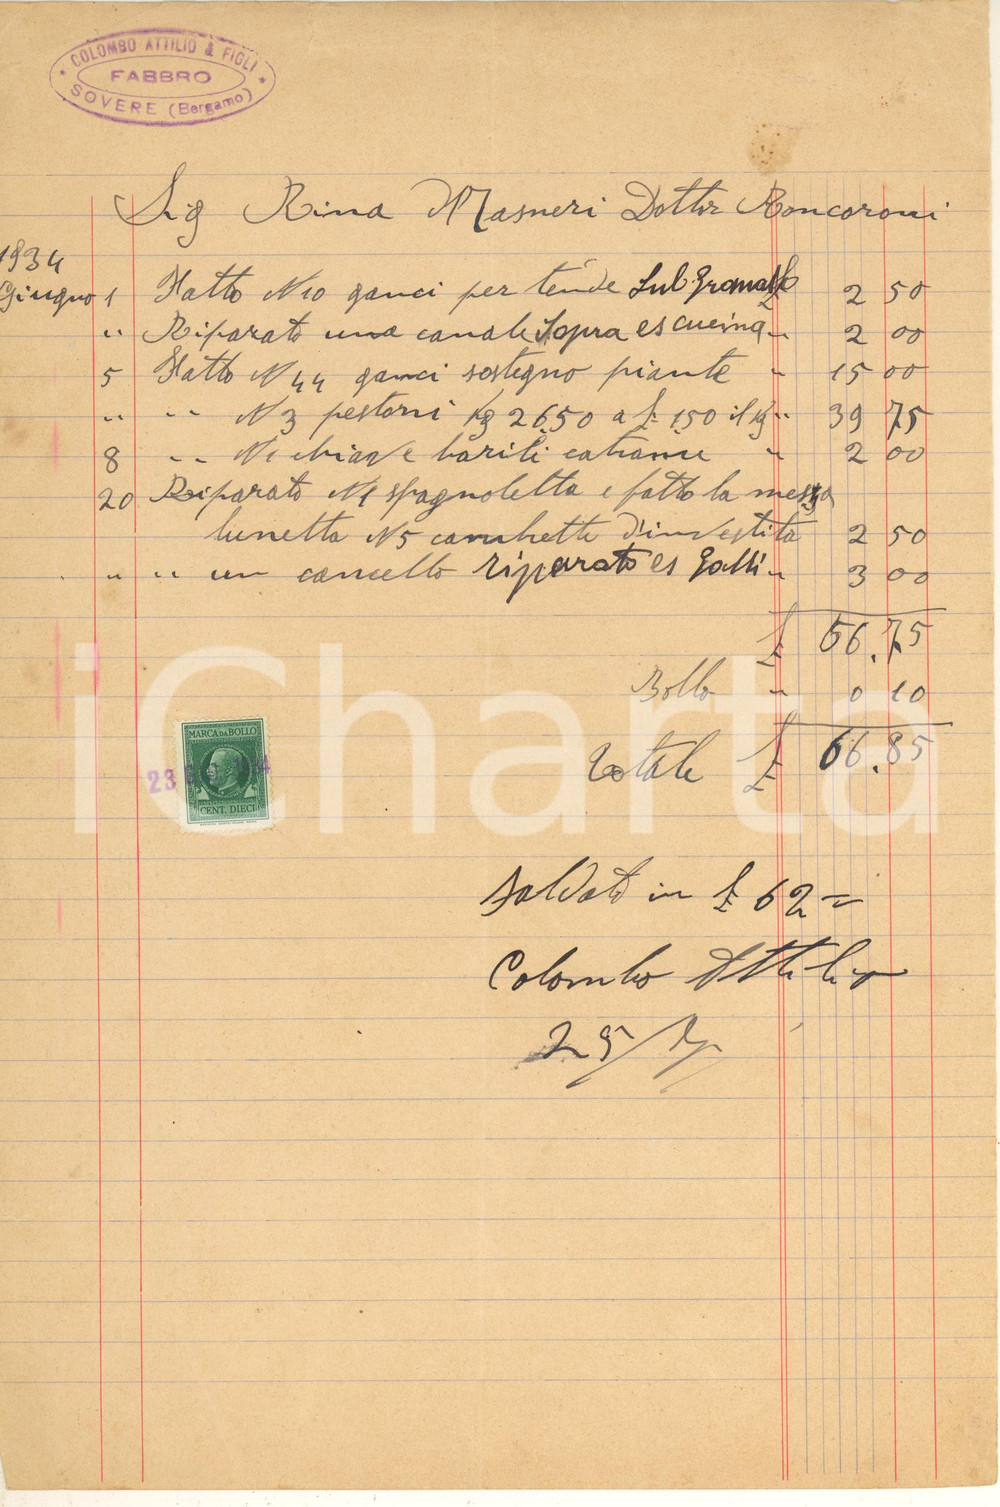 COLOMBO ATTILIO & FIGLI
FABBRO
SOVERE (Bergamo)
Sig Rina Masneri Dottor Roncoroni
1934
Giugno 1 Fatto N 10 ganci per tende £ 2 50
" Riparato una canale sopra es cucina " 2 00
5 Fatto N 44 ganci sostegno piante " 15 00
" " " N 3 pestoni Kg 26.50 a £ 1 50 il Kg " 39 75
8 " " N 1 chiave barili catrame " 2 00
20 Riparato N 1 spagnoletta e fatto la mezza
lunetta N 5 d'investita 2 50
" " " un cancello riparato es Galli " 3 00
£ 66.75
Bollo " 0 10
Totale £ 66.85
MARCA DA BOLLO
CENT. DIECI
23
Saldato in £ 62 =
Colombo Attilio
iCharta